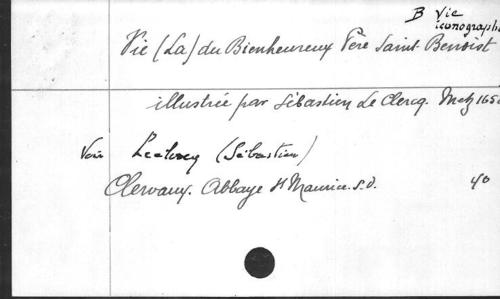 B Vie
iconographi
Vie (La) du Bienheureux Père Saint Benoist
illustrée par Sébastien Le Clercq. Metz 165
Voir Leclercq (Sébastien)
Clervaux. Abbaye St Maurice. s.d. 40